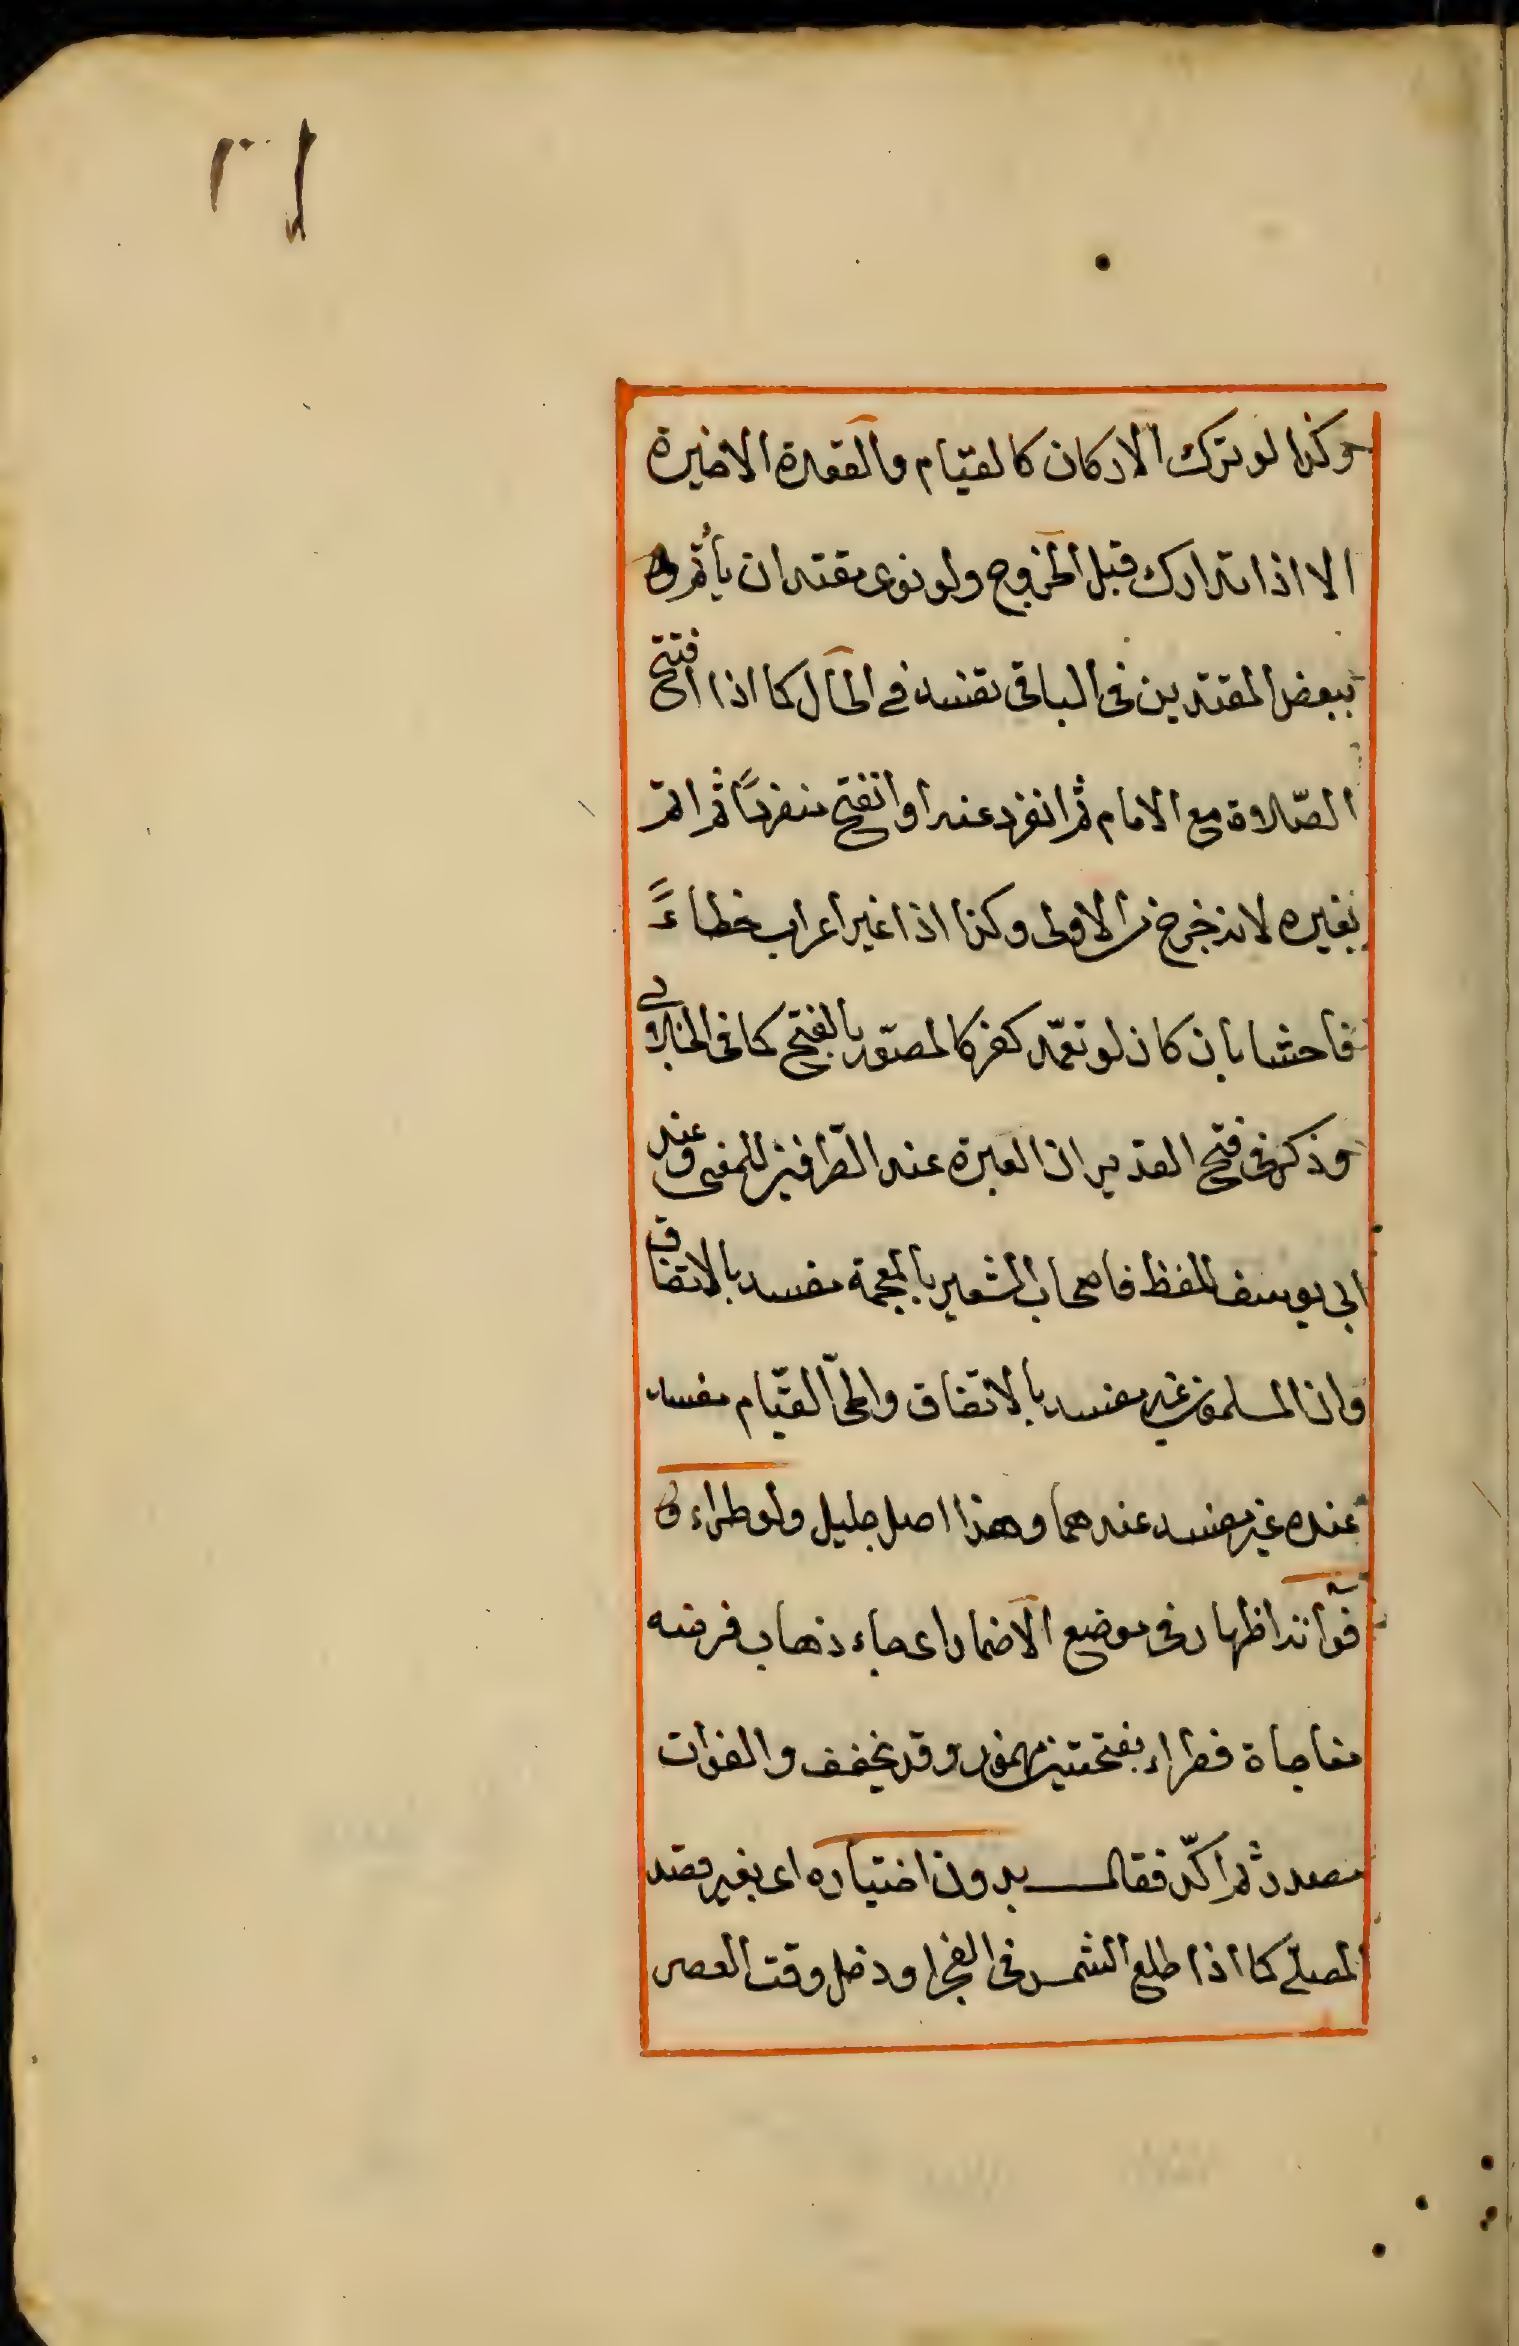 وكذا لو ترك الاركان كالقيام والقعدة الاخيرة
الا اذا تدارك قبل الخروج ولو نوى مقتد ان يأتم
ببعض المقتدين فى الباقى تفسد فى الحال كما اذا افتتح
الصّلاة مع الامام ثم انفرد عنه او افتتح منفردًا ثم ائتم
بغيره لانه خرج من الاولى وكذا اذا غير اعراب خطاءً
فاحشا بان كان لو تعمّد كفر كالمصوّر بالفتح كما فى الخلافى
وذكر فى فتح القدير ان العبرة عند الطّرفين للمعنى وعند
ابى يوسف للفظ فاصحاب الشعير بالمعجمة مفسد بالاتفاق
وان المسلمون غير مفسد بالاتفاق والحىّ القيّام مفسد
عنده غير مفسد عندهما وهذا اصل جليل ولو طراء
فوات اظهار فى موضع الاضمار اى جاء ذهاب فرضه
مفاجاة فطراء بفتحتين مهموز وقد يخفف والفوات
مصدر ثم اكّد فقال بدون اختياره اى بغير قصد
المصلى كما اذا طلع الشمس فى الفجر او دخل وقت العصر